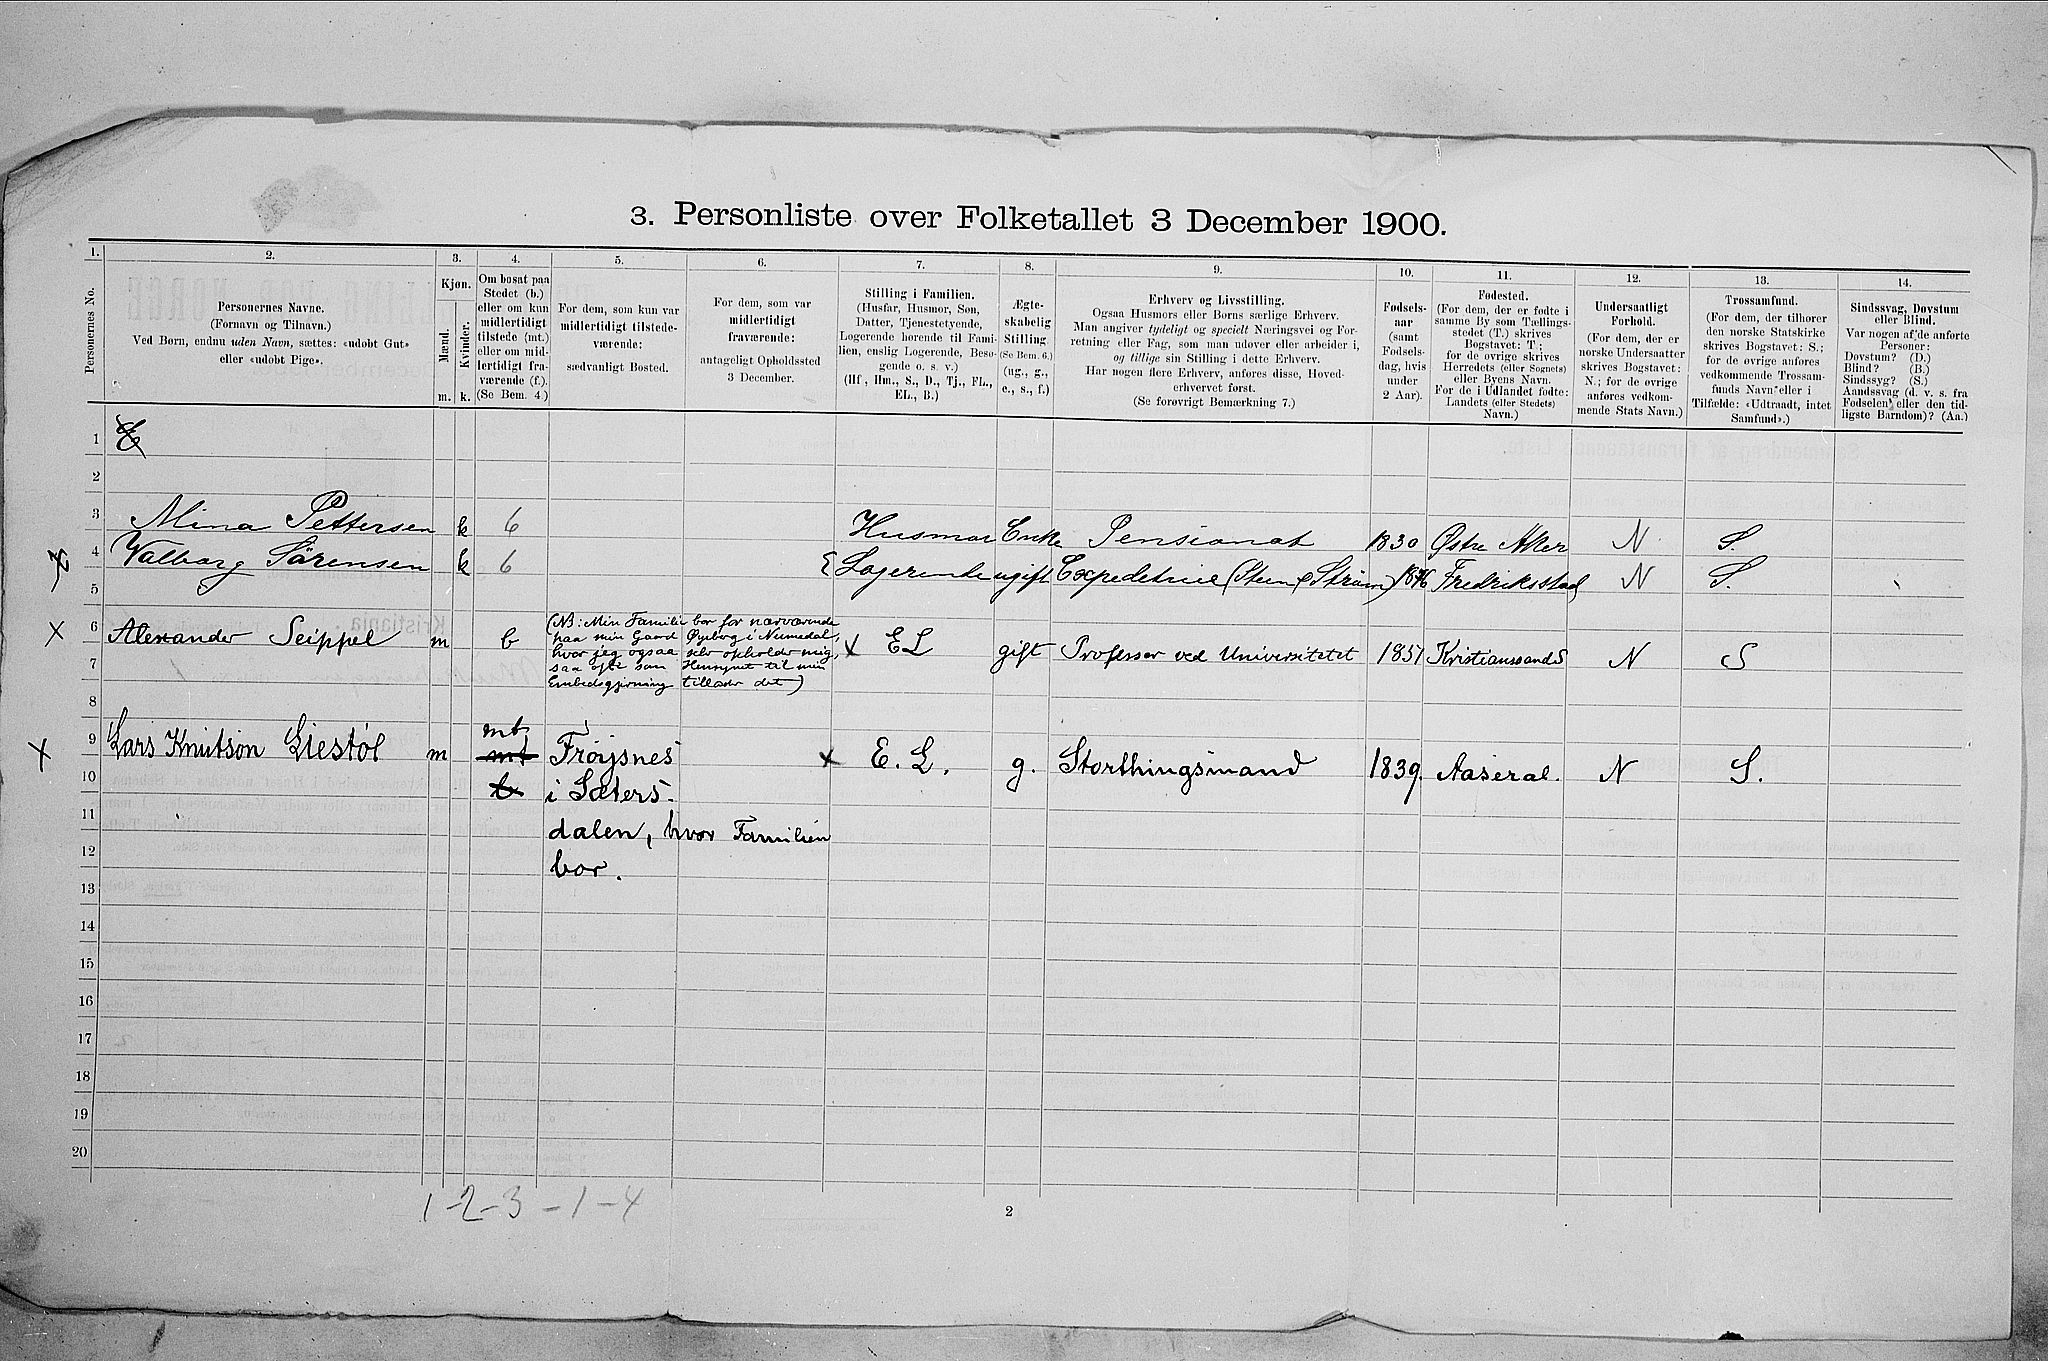 3. Personliste over Folketallet 3 December 1900.
1. 2. 3. 4. 5. 6. 7. 8. 9. 10. 11. 12. 13. 14.
Personernes No.
Personernes Navne.
(Fornavn og Tilnavn.)
Ved Børn, endnu uden Navn, sættes: «udøbt Gut»
eller «udøbt Pige».
Kjøn.
Mænd.
Kvinder.
m. k.
Om bosat paa
Stedet (b.)
eller om kun
midlertidigt
tilstede (mt.)
eller om mid-
lertidigt fra-
værende (f.).
(Se Bem. 4.)
For dem, som kun var
midlertidigt tilstede-
værende:
sædvanligt Bosted.
For dem, som var
midlertidigt
fraværende:
antageligt Opholdssted
3 December.
Stilling i Familien.
(Husfar, Husmor, Søn,
Datter, Tjenestetyende,
Logerende hørende til Fami-
lien, enslig Logerende, Besø-
gende o. s. v.)
(Hf., Hm., S., D., Tj., FL.,
EL., B.)
Ægte-
skabelig
Stilling.
(Se Bem. 6.)
(ug., g.,
e., s., f.)
Erhverv og Livsstilling.
Ogsaa Husmors eller Børns særlige Erhverv.
Man angiver tydeligt og specielt Næringsvei og For-
retning eller Fag, som man udøver eller arbeider i,
og tillige sin Stilling i dette Erhverv.
Har nogen flere Erhverv, anføres disse, Hoved-
erhvervet først.
(Se forøvrigt Bemærkning 7.)
Fødsels-
aar
(samt
Fødsels-
dag, hvis
under
2 Aar).
Fødested.
(For dem, der er fødte i
samme By som Tællings-
stedet (T.) skrives
Bogstavet: T.;
for de øvrige skrives
Herredets (eller Sognets)
eller Byens Navn.
For de i Udlandet fødte:
Landets (eller Stedets)
Navn.)
Undersaatligt
Forhold.
(For dem, der er
norske Undersaatter
skrives Bogstavet:
N.; for de øvrige
anføres vedkom-
mende Stats Navn.)
Trossamfund.
(For dem, der tilhører
den norske Statskirke
skrives Bogstavet: S.;
for de øvrige anføres
vedkommende Trossam-
funds Navn eller i
Tilfælde: «Udtraadt, intet
Samfund».)
Sindssvag, Døvstum
eller Blind.
Var nogen af de anførte
Personer:
Døvstum? (D.)
Blind? (B.)
Sindssyg? (S.)
Aandssvag (d. v. s. fra
Fødselen eller den tid-
ligste Barndom)? (Aa.)
1
2
3 Mina Pettersen k b Husmor Enke Pensionat 1830 Østre Aker N S.
4 Valborg Sörensen k b Logerende ugift Expeditrice (Steen & Ström) Fredriksstad N S.
5
6 X Alexander Seippel m b (NB: Min Familie bor for nærværende
paa min Gaard Øyberg i Numedal,
hvor jeg ogsaa selv opholder mig,
saa ofte som Hensynet til min
Embedsgjerning tillader det)
X EL gift Professor ved Universitetet 1851 Kristianssand S N S
7
8
9 X Lars Knutson Liestöl m mt. mt b Fröysnes
i Sæters-
dalen, hvor Familien
bor.
X E. L. g. Storthingsmand 1839. Aaseral. N S.
10
11
12
13
14
15
16
17
18
19
20
1-2-3-1-4
2